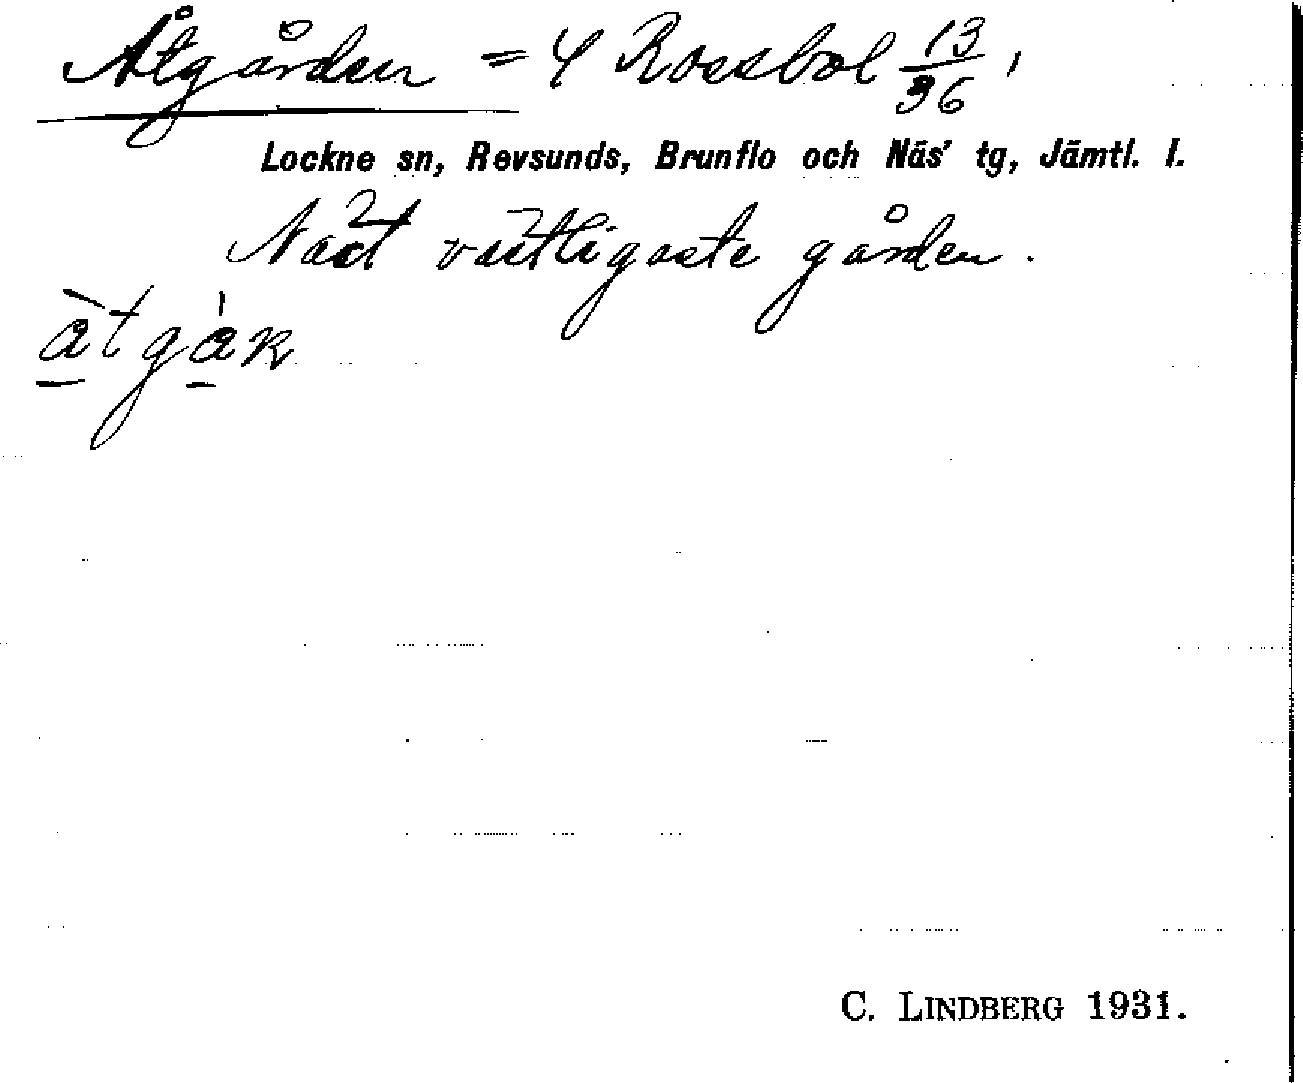 Åtgården = 4 Rossbol 13/36,
Lockne sn, Revsunds, Brunflo och Näs' tg, Jämtl. l.
Näst västligaste gården.
àtgák
C. LINDBERG 1931.